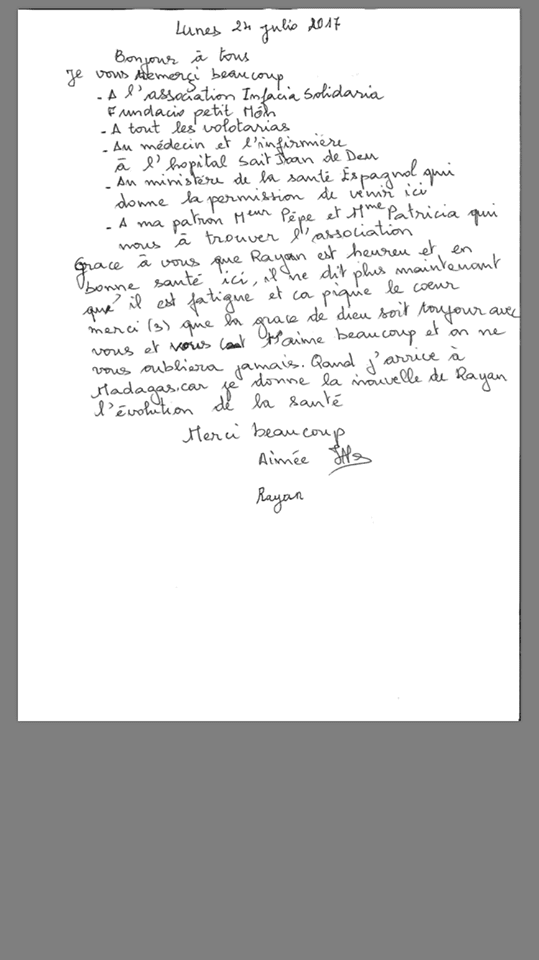 Lunes 24 julio 2017
Bonjour à tous
Je vous remerçi beaucoup
- A l'association Infacia Solidaria
Fundacio petit Món
- A tout les volotarias
- Au médecin et l'infirmière
à l'hopital Sait Joan de Deu
- Au ministére de la santé Espagnol qui
donne la permission de venir ici
- A ma patron Meur Pépe et Mme Patricia qui
nous à trouver l'association
Grace à vous que Rayan est heureu et en
bonne santé ici, il ne dit plus maintenant
que il est fatigue et ca pique le coeur
merci (3) que la grace de dieu soit toujour avec
vous et vous t'aime beaucoup et on ne
vous oubliera jamais. Qand j'arrice à
Madagas.car je donne la nouvelle de Rayan
l'évolution de la santé
Merci beaucoup
Aimée
Rayan